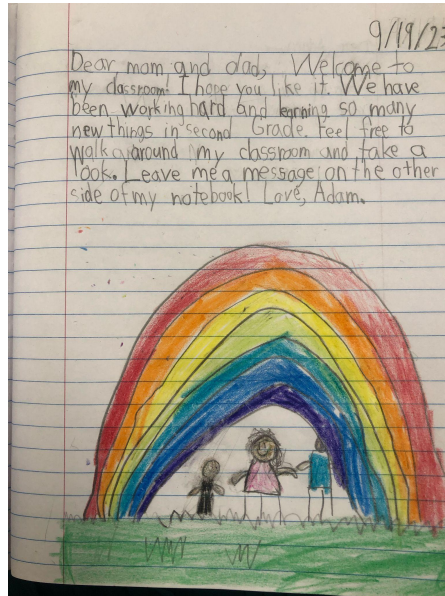 9/19/23
Dear mom and dad, Welcome to
my classroom! I hope you like it. We have
been working hard and learning so many
new things in second Grade. Feel free to
walk around my classroom and take a
look. Leave me a message on the other
side of my notebook! Love, Adam.